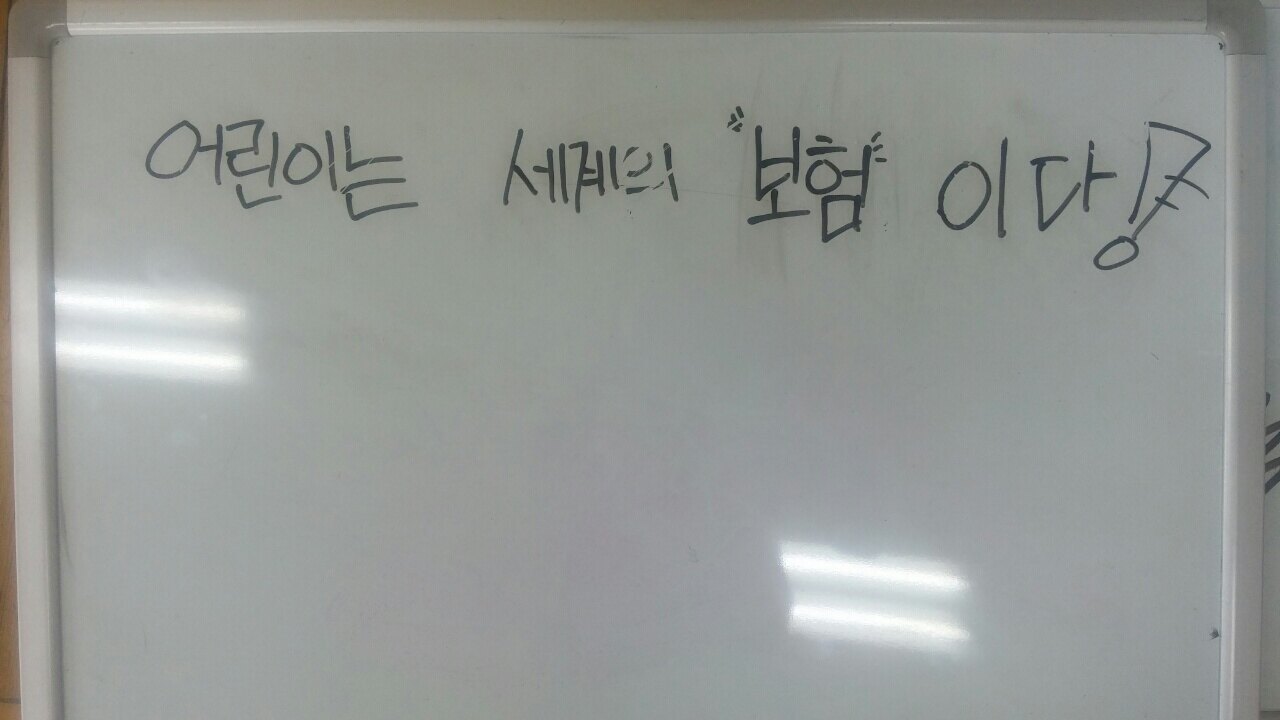 어린이는 세계의 "보험"이다!